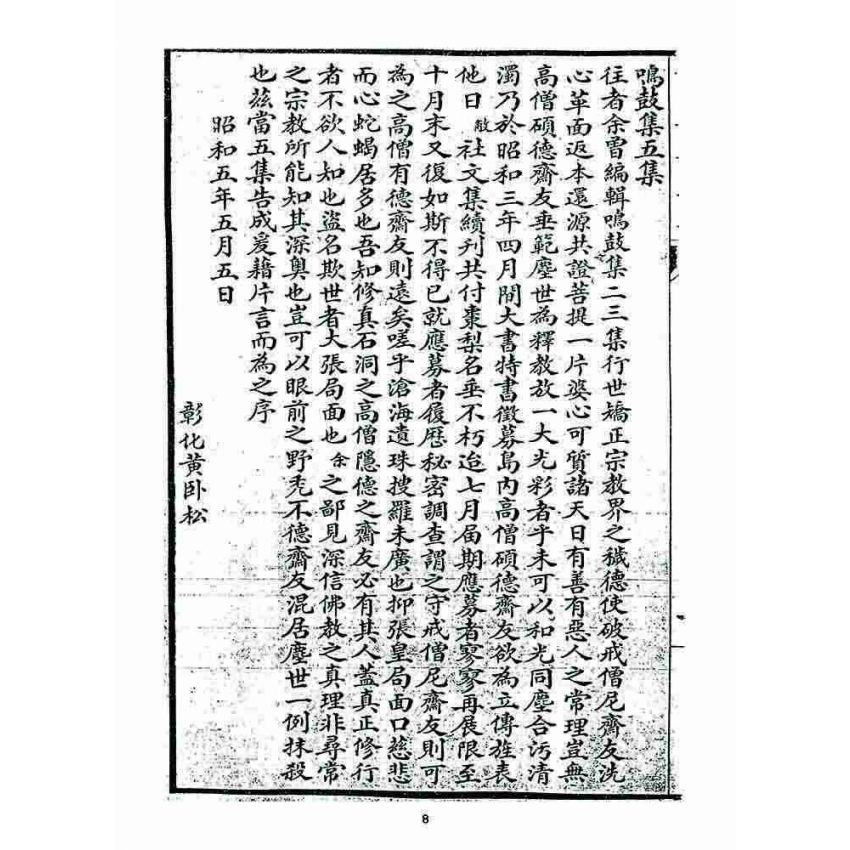 鳴鼓集五集
往者余曾編輯鳴鼓集二三集行世矯正宗教界之穢德使破戒僧尼齋友洗
心革面返本還源共證菩提一片婆心可質諸天日有善有惡人之常理豈無
高僧碩德齋友垂範塵世為釋教放一大光彩者乎未可以和光同塵合污清
濁乃於昭和三年四月間大書特書徵募島內高僧碩德齋友欲為立傳旌表
他日敝社文集續刊共付棗梨名垂不朽迨七月届期應募者寥寥再展限至
十月末又復如斯不得已就應募者履歷秘密調查謂之守戒僧尼齋友則可
為之高僧有德齋友則遠矣嗟乎滄海遺珠搜羅未廣也抑張皇局面口慈悲
而心蛇蝎居多也吾知修真石洞之高僧隱德之齋友必有其人蓋真正修行
者不欲人知也盜名欺世者大張局面也余之鄙見深信佛教之真理非尋常
之宗教所能知其深奧也豈可以眼前之野禿不德齋友混居塵世一例抹殺
也茲當五集告成爰藉片言而為之序
昭和五年五月五日
彰化黃卧松
8